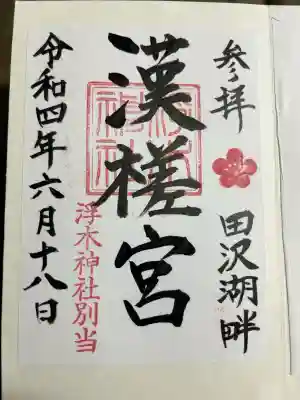 参拝
田沢湖畔
漢槎宮
浮木神社
浮木神社別当
令和四年六月十八日